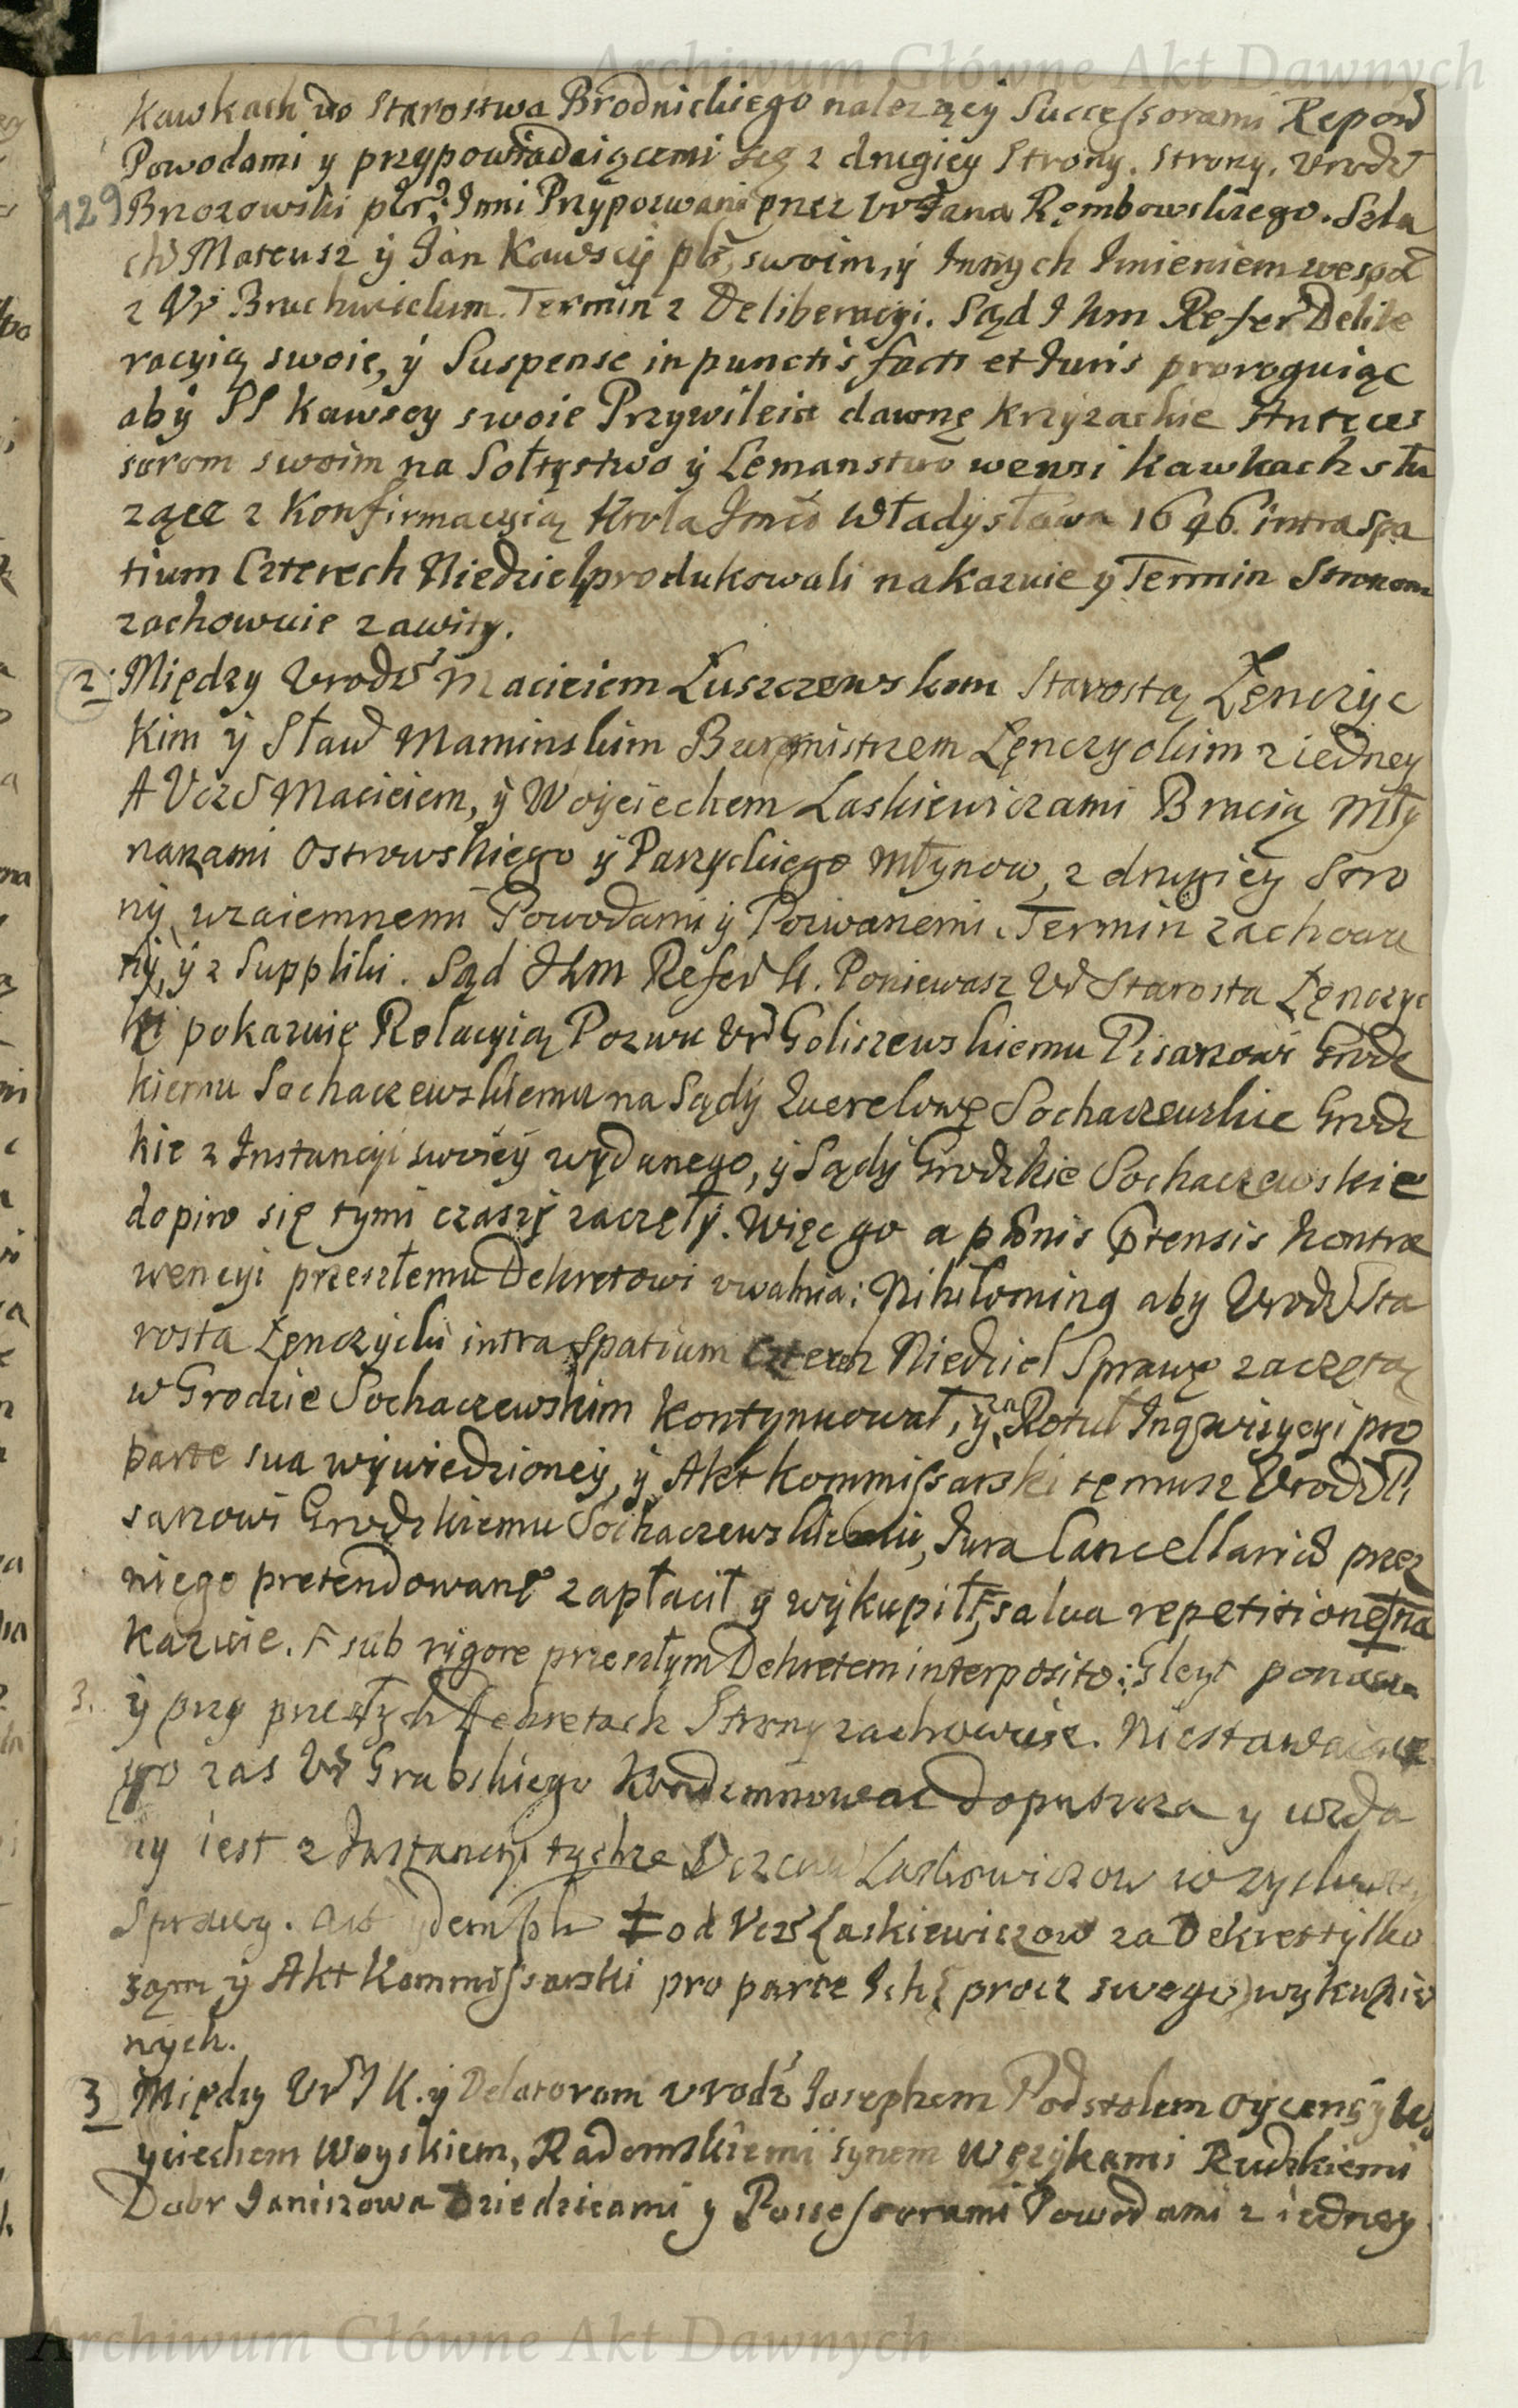 Archiwum Główne Akt Dawnych
Kawkach do Starostwa Brodnickiego nalezącÿ Successorami Repow̃
Powodami y przypowiadaiącemi się z drugiey Strony. Strony. Urodz̃
129 Brzozowski Inni Przypozwani przez Ur Jana Rembowskiego. Szla
ch Mateusz ÿ Jan Kawscÿ swoim, ÿ Innÿch Imieniem wespoł
z Ur Bruchwickim. Termin z Deliberacyi. Sąd J Km Refer̃ Delibe
racyią swoie, ÿ Suspense in punctis facti et Iuris proroguiąc
abÿ PP Kawscy swoie Przywileia dawnę Krzyzackie Anteces
sorom swoim na Sołtystwo ÿ Lemanstwo wewsi Kawkach słu
zące z Konfirmacyią Krola Jmci Władysława 1646. intra spa
tium Czterech Niedziel produkowali nakazuie ÿ Termin Stronom
zachowuie zawity.
2. Między Urodz̃ Macieiem Łuszczewskim Starostą Łęnczyc
kim ÿ Sław̃ Maminskim Burmistrzem Łęnczyckim z iedney
A Uczć Macieiem, ÿ Woyciechem Laskiewiczami Bracią Mły
narzami Ostrowskiego ÿ Parzyckiego Młynow, z drugiey Stro
nÿ, wzaiemnemi Powodami ÿ Pozwanemi. Termin zachowa
nÿ, ÿ z Suppliki. Sąd JKm Refer̃ K. Poniewasz Ur Starosta Łęnczyc
ki pokazuię Relacyią Pozwu Ur̃ Goliszewskiemu Pisarzowi Grodz
kiemu Sochaczewskiemu na Sądÿ Querelowę Sochaczewskie Grodz
kie z Instancyi swoieÿ wydanego, ÿ Sądÿ Grodzkie Sochaczewskie
dopiro się tymi czasÿ zaczętÿ. Więc go a pænis prætensis Kontra
wencyi przeszłemu Dekretowi uwalnia: Nihilominq aby Urodz̃ Sta
rosta Łęnczycki intra spatium Czterech Niedziel Sprawę zaczętą
w Grodzie Sochaczewskim Kontynuował, ÿ za Rotuł Inqwizycyi pro
parte sua wÿwiedzioneÿ, ÿ Akt Kommissarski temusz Urodz̃ Pi
sarzowi Grodzkiemu Sochaczewskiemu, Jura Cancellariæ przez
niego pretendowanę zapłacił y wÿkupił, F salva repetitione na
kazuie. F sub rigore przeszłym Dekretem interposito: Gleyt ponawia
3. ÿ przy przeszłych Dekretach Strony zachowuie. Niestawaiące
go zas Ur Grabskiego Kondemnować dopuszcza y wzda
ny iest z Instancyi tychze Uczciw Laskiewiczow w zyskuiący
Sprawy. ‡ od Uczć Laskiewiczow za Dekret tylko
sąm ÿ Akt Kommissarski pro parte Ich (procz swego) wykupio
nÿch.
3 Między Ur̃ J K. ÿ Delatorami Urodz̃ Josephem Podstolem Oycem ÿ Wo
yciechem Woyskiem, Radomskiemi synem Węzÿkami Rudzkiemi
Dobr Janiszowa Dziedzicami y Possessorami Powodami z iedney
Archiwum Główne Akt Dawnych